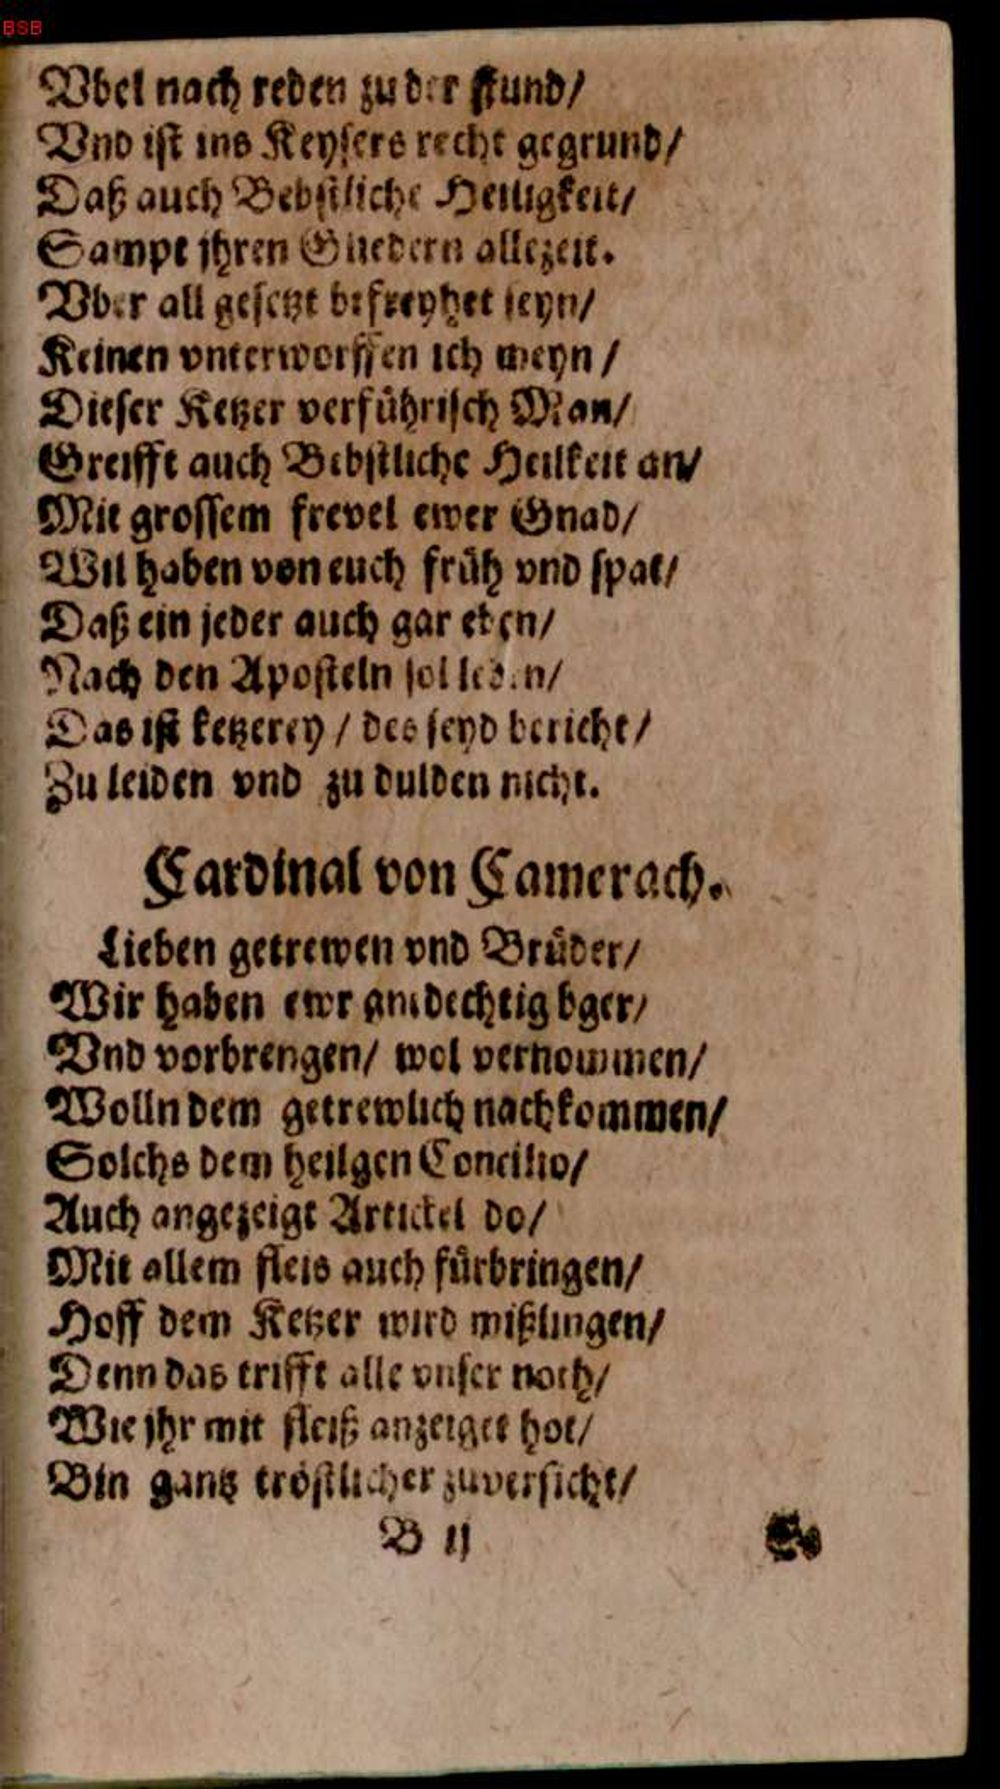 BSB
Vbel nach reden zu der stund/
Vnd ist ins Keysers recht gegrund/
Daß auch Bebstliche Heiligkeit/
Sampt jhren Gliedern allezeit.
Vber all gesetzt befreyhet seyn/
Keinen vnterworffen ich meyn /
Dieser Ketzer verführisch Man/
Greifft auch Bebstliche Heilkeit an/
Mit grossem frevel ewer Gnad/
Wil haben von euch früh vnd spat/
Daß ein jeder auch gar eben/
Nach den Aposteln sol leben/
Das ist ketzerey / des seyd bericht/
Zu leiden vnd zu dulden nicht.
Cardinal von Camerach.
Lieben getrewen vnd Brüder/
Wir haben ewr andechtig bger/
Vnd vorbrengen/ wol vernommen/
Wolln dem getrewlich nachkommen/
Solchs dem heilgen Concilio/
Auch angezeigt Artickel do/
Mit allem fleis auch fürbringen/
Hoff dem Ketzer wird mißlingen/
Denn das trifft alle vnser noth/
Wie jhr mit fleiß anzeiget hot/
Bin gantz tröstlicher zuversicht/
B ij Es